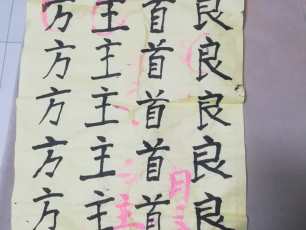 方主首良
方主首良
方主首良
方主首良
方主首良
月
主